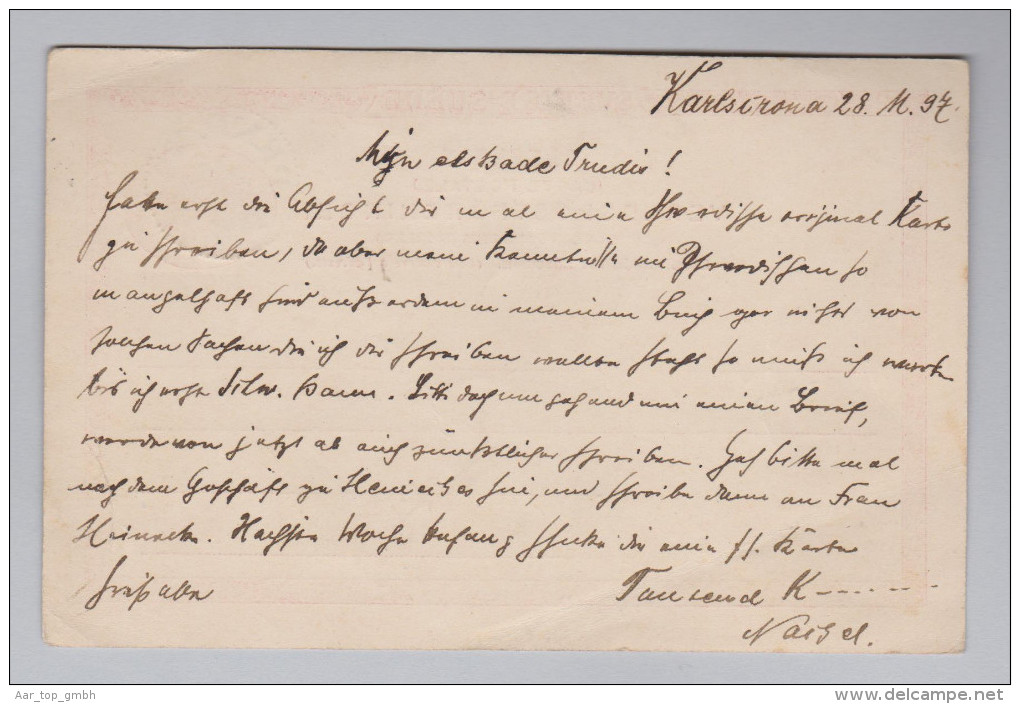 Karlscrona 28. 11. 97.
Min elskade Trudis!
Hatte erst die Absicht dir mal eine schwedische original Karte
zu schreiben, da aber meine Kenntnisse im Schwedischen so
mangelhaft sind außerdem in meinem Buch gar nichts von
solchen Sachen die ich dir schreiben wollte steht so muß ich warten
bis ich erst Schw. kann. Bitte doch umgehend um einen Brief,
werde von jetzt ab auch pünktlicher schreiben. Geh bitte mal
nach dem Geschäft zu hin, und schreibe dann an Frau
Heinecke. Nächste Woche Anfang schicke dir eine ff. Karte
Grüß alle
Tausend K------
Aar_top_gmbh
www.delcampe.net